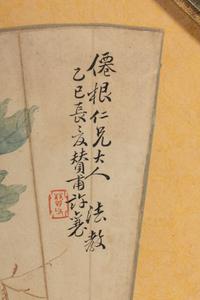 僊根仁兄大人 法教
乙巳長夏贊甫許堯